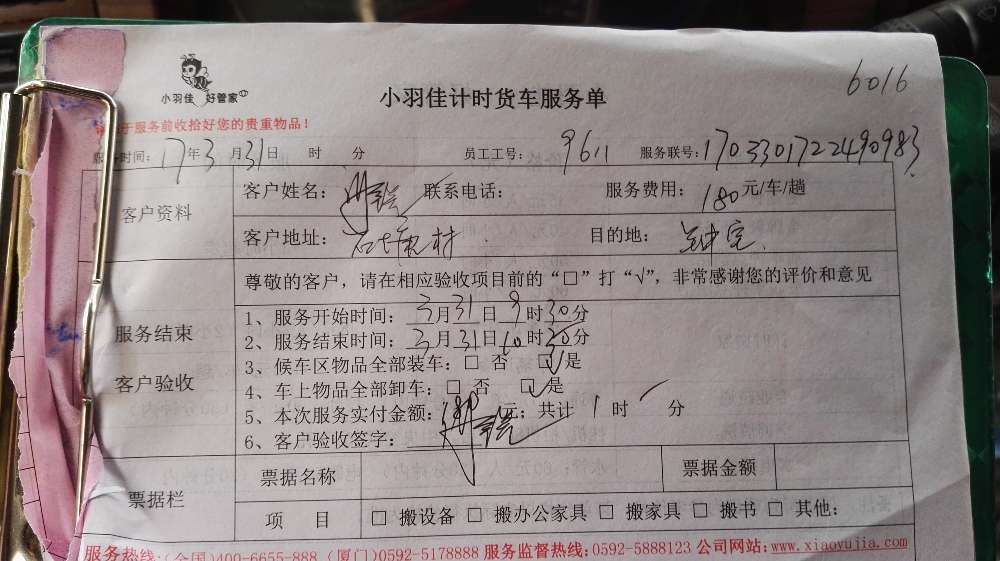 6016
小羽佳 好管家
小羽佳计时货车服务单
于服务前收拾好您的贵重物品！
服务时间：17年3月31日 时 分 员工工号：9611 服务联号：1703301722490983
客户资料
客户姓名： 联系电话： 服务费用：180元/车/趟
客户地址： 村 目的地：
尊敬的客户，请在相应验收项目前的“□”打“√”，非常感谢您的评价和意见
服务结束
客户验收
1、服务开始时间：3月31日9时30分
2、服务结束时间：3月31日10时30分
3、候车区物品全部装车：□ 否 □ 是
4、车上物品全部卸车：□ 否 □ 是
5、本次服务实付金额： 元；共计 1 时 分
6、客户验收签字：
票据栏
票据名称 票据金额
项 目 □ 搬设备 □ 搬办公家具 □ 搬家具 □ 搬书 □ 其他：
服务热线：(全国)400-6655-888 (厦门)0592-5178888 服务监督热线：0592-5888123 公司网站：www.xiaoyujia.com